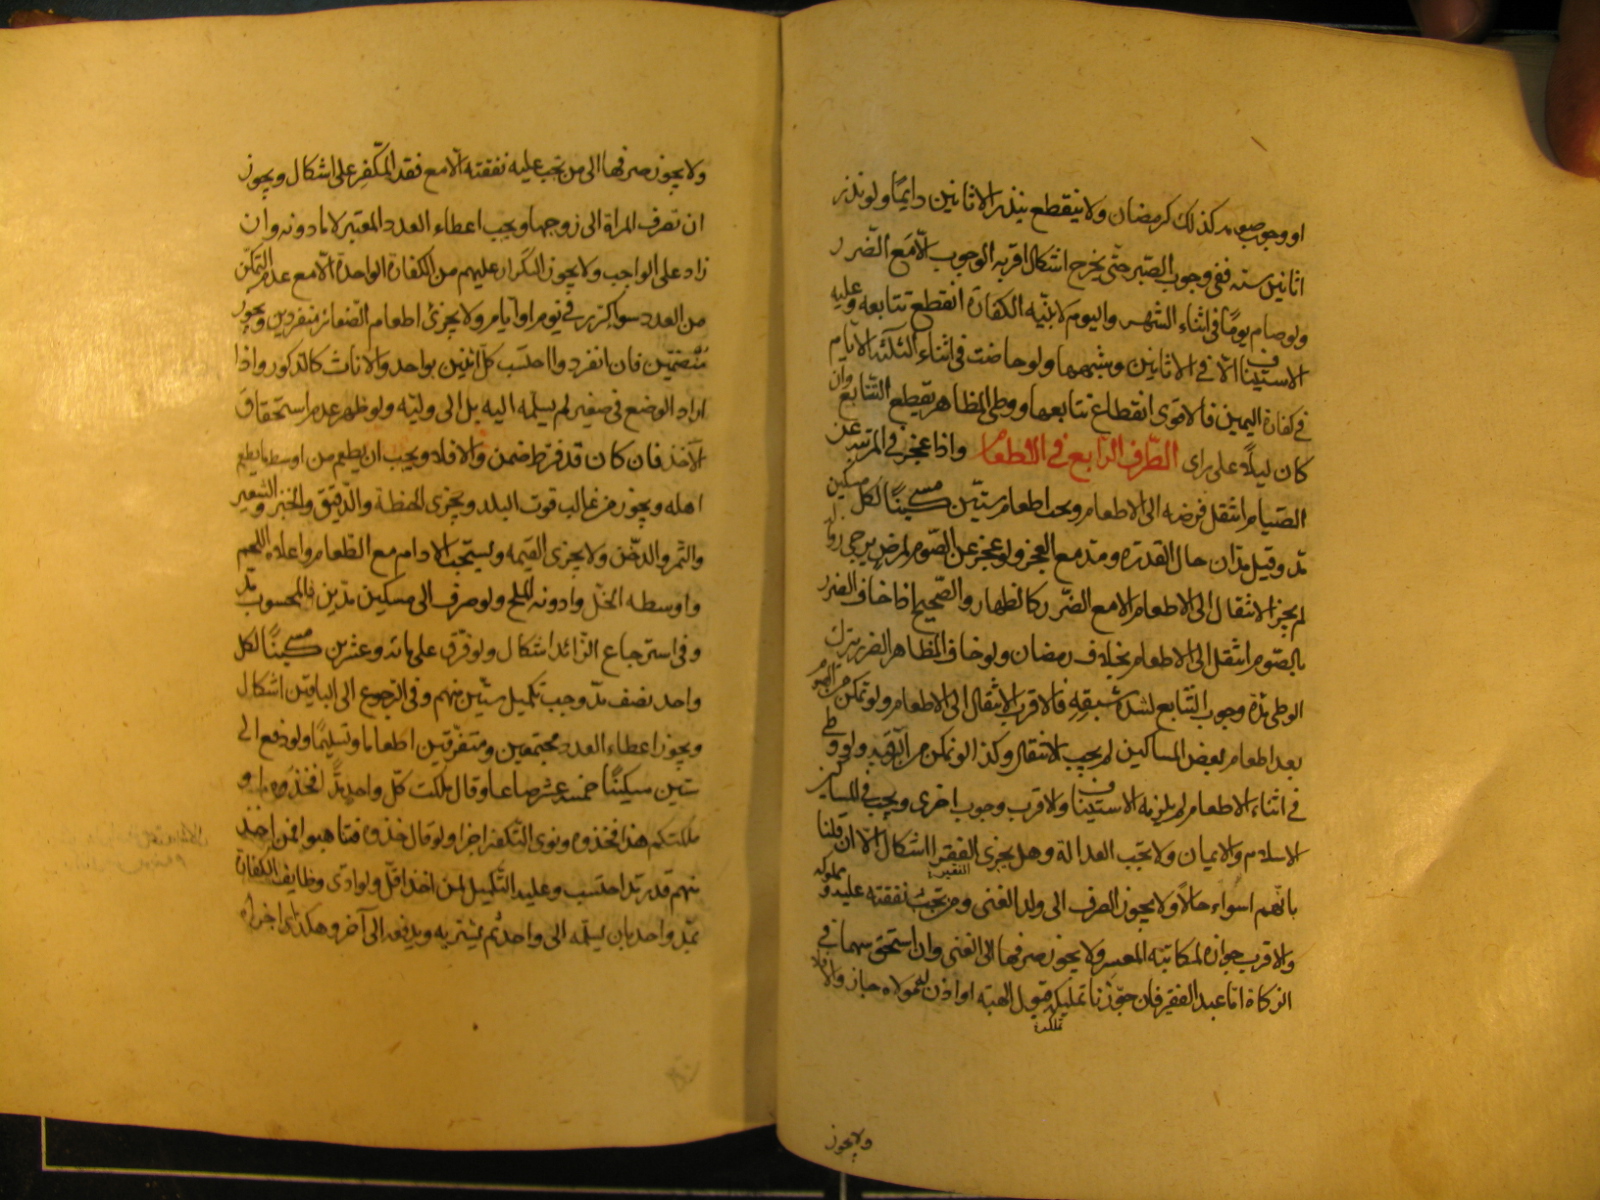 او وجوب صومه كذلك كرمضان ولا ينقطع بنذر الاثانين دايمًا ولو نذر
اثانين سنه ففى وجوب الصّبر حتّى يخرج اشكال اقربه الوجوب الّا مَع الضّرر
ولو صام يومًا فى اثناء الشّهر واليوم لا بنيّة الكفارة انقطع تتابعه وعليه
الاستيناف الّا فى الاثانين وشبهها ولو حاضت فى اثناء الثلثة الايّام
فى كفارة اليمين فالاقوى انقطاع تتابعها ووطى المظاهر يقطع التّتابع وان
كان ليلًا على راى الطّرف الرّابع فى الاطعام واذا عجز فى المرتبه عن
الصّيام انتقل فرضه الى الاطعام ويجب اطعام ستّين مسكينًا لكل مسكين
مُدّ وقيل مدّان حال القدره ومدّ مع العجز ولو عجز عن الصّوم لمرض يرجى زواله
لم يجز الانتقال الى الاطعام الا مع الضّرر كالظهار والصّحيح اذا خاف الضرر
بالصّوم انتقل الى الاطعام بخلاف رمضان ولو خاف المظاهر الضرر بترك
الوطى مدّة وجوب التّتابع لشدّة شبقِهِ فالاقرب الانتقال الى الاطعام ولو تمكن من الصّوم
بعد اطعام بعض المساكين لم يجب الانتقال وكذا لو تمكن من الرّقبة ولو وطى
فى اثناء الاطعام لم يلزمه الاستيناف والاقرب وجوب اخرى ويجب فى المساكين
الاسلام والايمان ولا يجب العدالة وهل يجزى الفقير اشكال الّا ان قلنا
الفقير
بانّهم اسواء حالًا ولا يجوز الصرف الى ولد الغنى ومن تجب نفقته عليه ومملوكه
والاقرب جوازه لمكاتبه المعسر ولا يجوز صرفها الى الغنى وان استحق سهما فى
الزكاة امّا عبد الفقير فان جوّزنا تمليكه قبول الهبة او اذن له مولاه جاز والّا فلا
تملكه
ولا يجوز
ولا يجوز صرفها الى من تجب عليه نفقته الّا مع فقد المكفّر على اشكال ويجوز
ان تصرف المراة الى زوجها ويجب اعطاء العدد المعتبر لا ما دونه وان
زاد على الواجب ولا يجوز التّكرار عليهم من الكفارة الواحدة الّا مع عدم التمكّن
من العدد سوا كرّر فى يوم او ايام ولا يجزى اطعام الصّغار منفردين ويجوز
منضمّين فان انفردوا احتسب كلّ اثنين بواحد والاناث كالذكور واذا
اراد الوضع فى صغير لم يسلمه اليه بل الى وليّه ولو ظهر عدم استحقاق
الآخذ فان كان قد فرّط ضمن والا فلا ويجب ان يطعم من اوسط ما يطعم
اهله ويجوز من غالب قوت البلد ويجزى الحنطة والدّقيق والخبز والشعير
والتمر والدخن ولا يجزى القيمه ويستحب الادام مع الطّعام واعلاه اللحم
واوسطه الخلّ وادونه الملح ولو صرف الى مسكين مدّين فالمحسوب مدّ
وفى استرجاع الزائد اشكال ولو فرّق على مائه وعشرين مسكينًا لكل
واحد نصف مدّ وجب تكميل ستّين منهم وفى الرّجوع الى الباقين اشكال
ويجوز اعطاء العدد مجتمعين ومتفرّقين اطعاما وتسليمًا ولو دفع الى
ستين مسكينًا خمسة عشر صاعا وقال ملكت كلّ واحد مدًّا فخذوه او
ملكتكم هذا فخذوه ونوى التّكفير اجزا ولو قال خذوه فتناهبوا فمن اخذ
منهم قدر مدّ احتسب وعليه التّكميل لمن اخذ اقلّ ولو ادّى وظايف الكفارة
بمدّ واحد بان يسلّمه الى واحد ثم يشتريه ويدفعه الى آخر وهكذا اجزاه